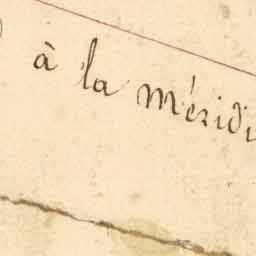 à la méridi